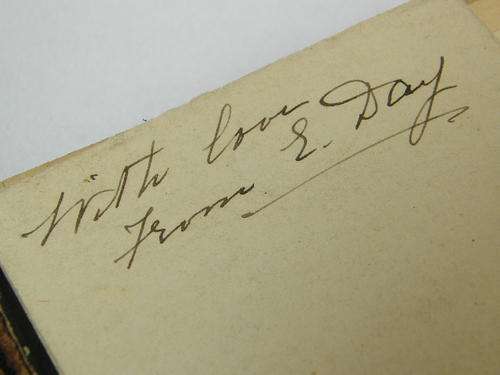 With love
from E. Day